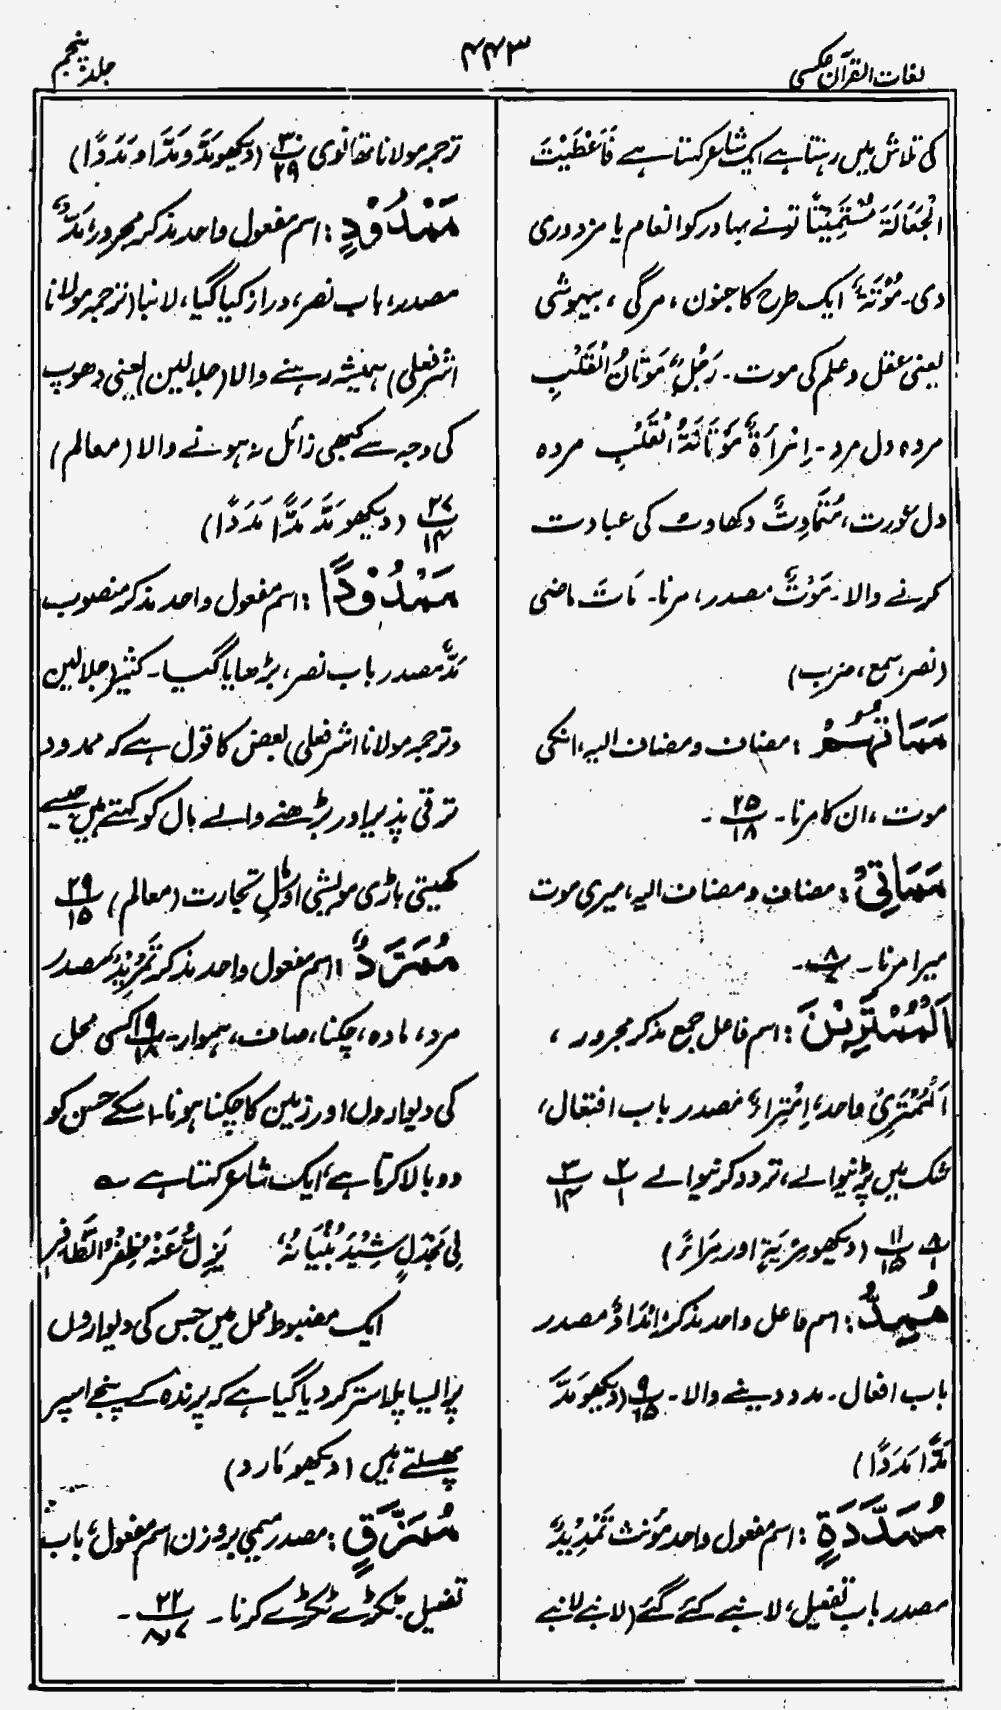 لغات القرآن عکسی
۴۴۳
جلد پنجم
کی تلاش میں رہتا ہے ایک شاعر کہتا ہے فَاَعْطَیْتَ
الْجَعَالَةَ مُسْتَمِیْتًا تونے بہادر کو انعام یا مزدوری
دی۔ مُوْتَةٌ ایک طرح کا جنون، مرگی، بیہوشی
یعنی عقل و علم کی موت۔ رَجُلٌ مَوْتَانُ الْقَلْبِ
مردہ دل مرد۔ اِمْرَأَةٌ مَوْتَانَةُ الْقَلْبِ مردہ
دل عورت، مُتَمَاوِتٌ دکھاوٹ کی عبادت
کرنے والا۔ مَوْتٌ مصدر، مرنا۔ مَاتَ ماضی
(نصر، سمع، ضرب)
مَمَاتُهُمْ: مضاف و مضاف الیہ، انکی
موت، ان کا مرنا۔ ۲۵/۱۸۔
مَمَاتِیْ: مضاف و مضاف الیہ، میری موت
میرا مرنا۔ ۸/۷۔
اَلْمُمْتَرِیْنَ: اسم فاعل جمع مذکر مجرور،
اَلْمُمْتَرِیْ واحد، اِمْتِرَاءٌ مصدر باب افتعال،
شک میں پڑنیوالے، تردد کرنیوالے ۲/۱ ۳/۱۴
۸/۱ ۱۱/۱۵ (دیکھو مِرْیَةٍ اور مِرَاءً)
مُمِدٌّ: اسم فاعل واحد مذکر، اِمْدَادٌ مصدر
باب افعال۔ مدد دینے والا۔ ۹/۱۵ (دیکھو مَدَّ
مَدًّا مَدَدًا)
مُمَدَّدَةٍ: اسم مفعول واحد مؤنث تَمْدِیْدٌ
مصدر باب تفعیل، لانبے کئے گئے (لانبے لانبے
ترجمہ مولانا تھانوی ۳۰/۲۹ (دیکھو مَدَّ و مَدًّا و مَدَدًا)
مَمْدُوْدٍ: اسم مفعول واحد مذکر مجرور، مَدٌّ
مصدر، باب نصر، دراز کیا گیا، لانبا (ترجمہ مولانا
اشرفعلی) ہمیشہ رہنے والا (جلالین) یعنی دھوپ
کی وجہ سے کبھی زائل نہ ہونے والا (معالم)
۲۷/۱۴ (دیکھو مَدَّ مَدًّا مَدَدًا)
مَمْدُوْدًا: اسم مفعول واحد مذکر منصوب
مَدٌّ مصدر باب نصر، بڑھایا گیا۔ کثیر (جلالین
و ترجمہ مولانا اشرفعلی) بعض کا قول ہے کہ ممدود
ترقی پذیر اور بڑھنے والے مال کو کہتے ہیں جیسے
کھیتی باڑی مویشی اور مالِ تجارت (معالم) ۲۹/۱۵
مُمَرَّدٌ: اسم مفعول واحد مذکر تَمْرِیْدٌ مصدر
مرد، مادہ، چکنا، صاف، ہموار۔ ۱۹/۱۸ کسی محل
کی دیواروں اور زمین کا چکنا ہونا۔ اسکے حسن کو
دو بالا کرتا ہے، ایک شاعر کہتا ہے ؎
فِیْ مَجْدَلٍ شِیْدَ بُنْیَانُهٗ یَزِلُّ عَنْهُ ظُفُرُ الظَّافِرِ
ایک مضبوط محل میں جس کی دیواروں
پر ایسا پلاستر کر دیا گیا ہے کہ پرندہ کے پنجے اسپر
پھسلتے ہیں (دیکھو مَارِد)
مُمَزَّقٍ: مصدر میمی بروزن اسم مفعول، باب
تفعیل، ٹکڑے ٹکڑے کرنا۔ ۲۲/۷و۸۔